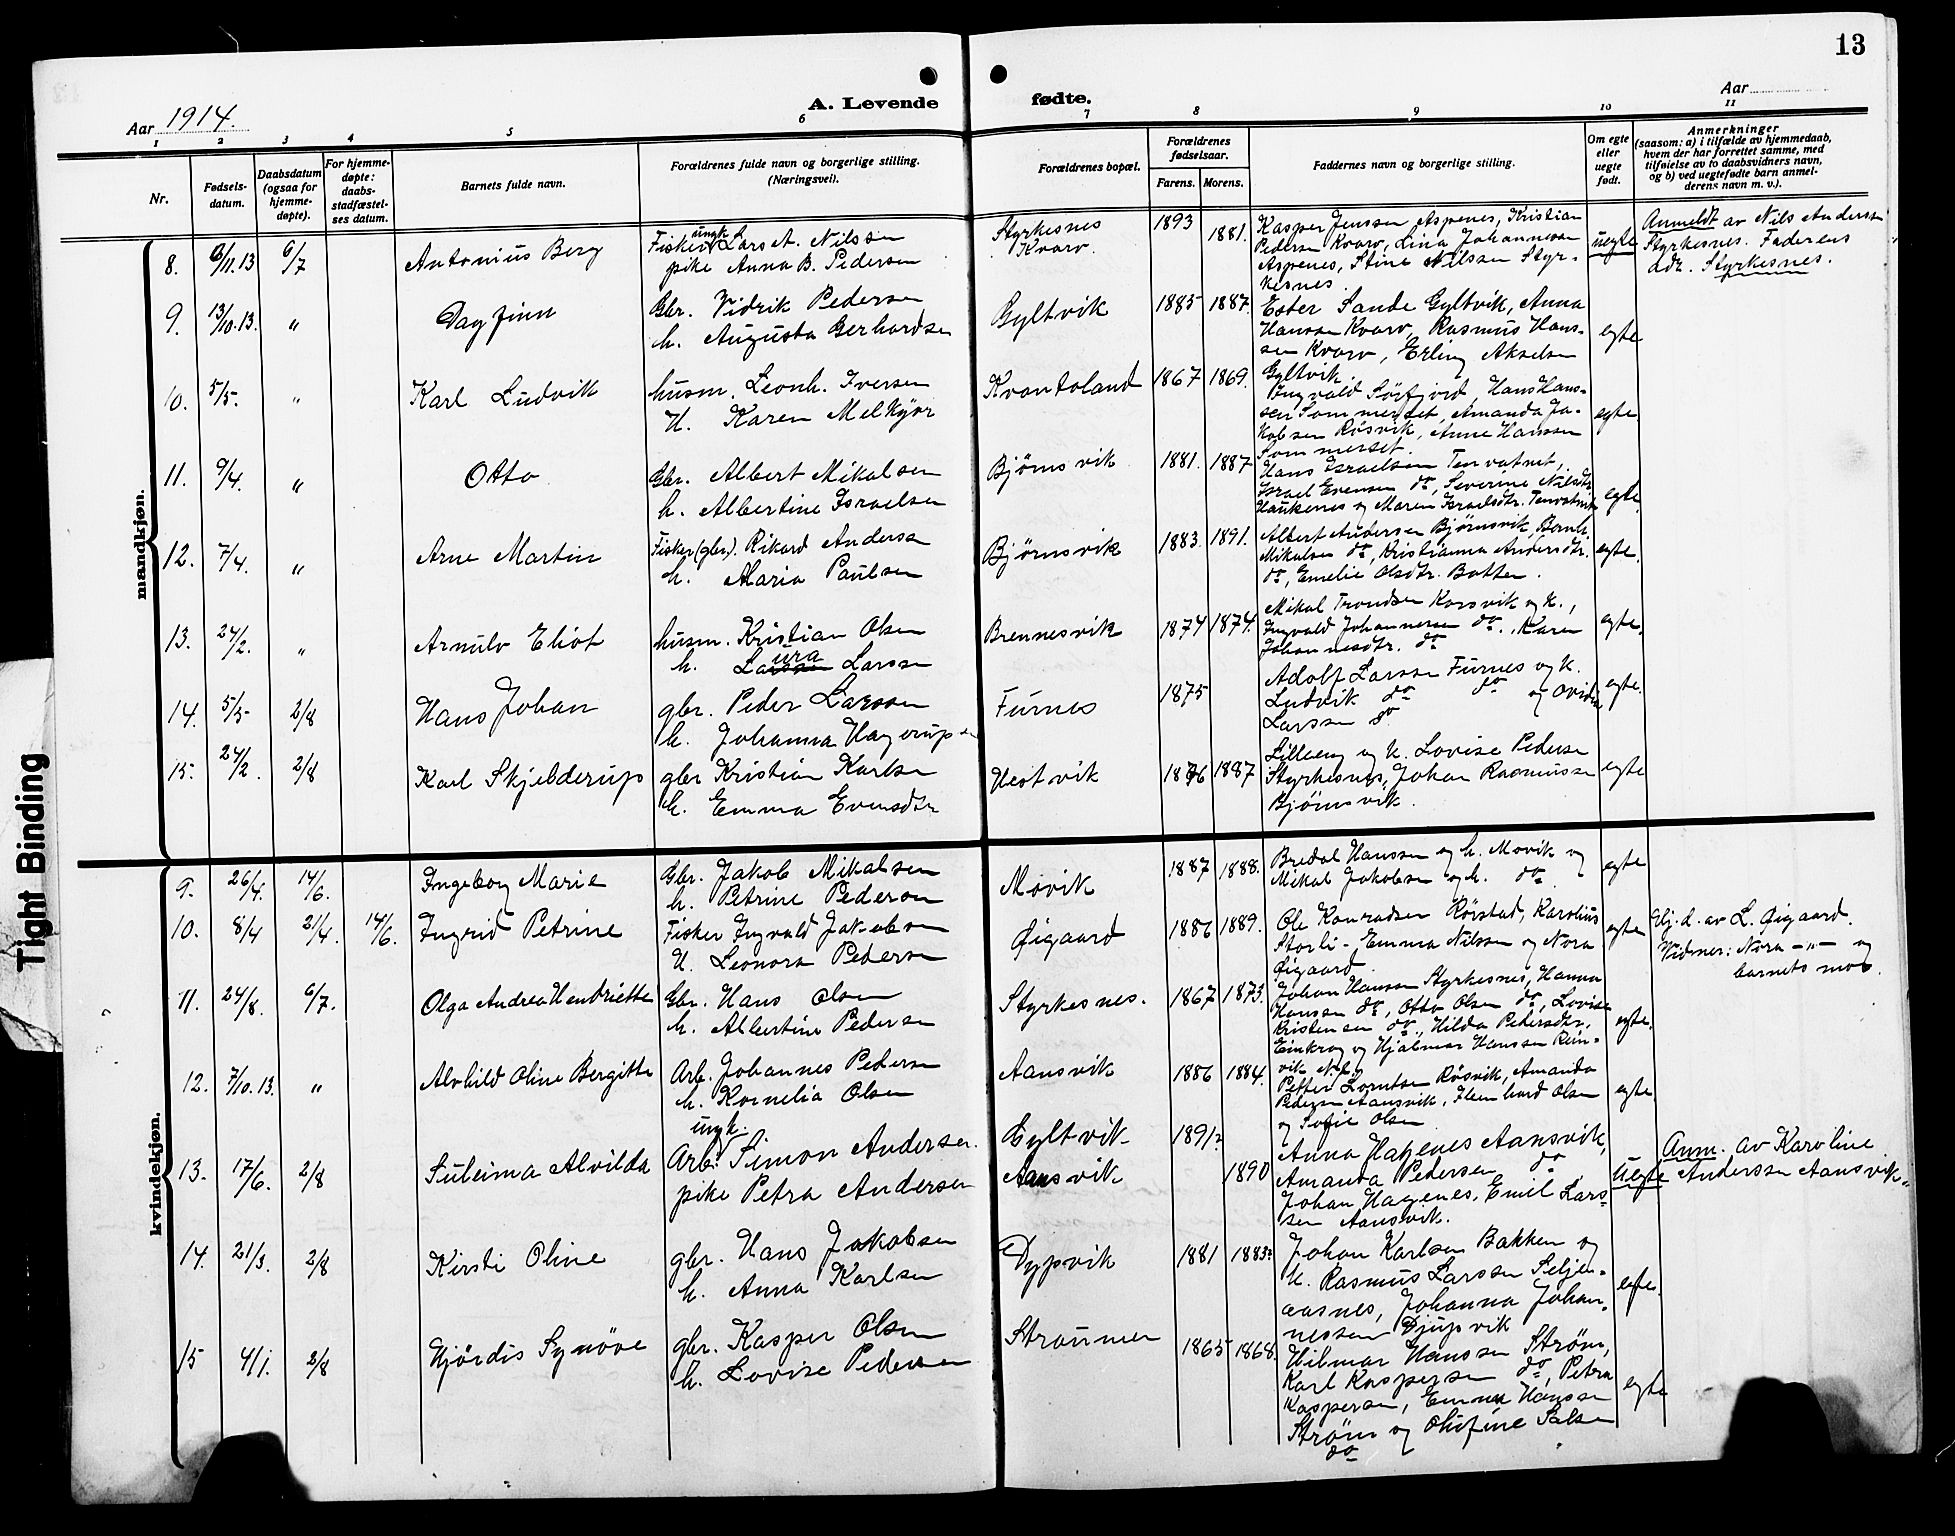 13
Aar 1914.
A. Levende fødte.
Aar
1 2 3 4 5 6 7 8 9 10 11
Nr.
Fødsels-
datum.
Daabsdatum
(ogsaa for
hjemme-
døpte).
For hjemme-
døpte:
daabs-
stadfæstel-
ses datum.
Barnets fulde navn.
Forældrenes fulde navn og borgerlige stilling.
(Næringsvei).
Forældrenes bopæl.
Forældrenes
fødselsaar.
Farens. Morens.
Faddernes navn og borgerlige stilling.
Om egte
eller
uegte
født.
Anmerkninger
(saasom: a) i tilfælde av hjemmedaab,
hvem der har forrettet samme, med
tilføielse av to daabsvidners navn,
og b) ved uegtefødte barn anmel-
derens navn m. v.).
mandkjøn.
8. 6/11.13 6/7 Antonius Berg
Fisker ungk. Lars A. Nilssen
pike Anna B. Pedersen
Styrkesnes
Kvarv.
1893 1881.
Kasper Jenssen Aspenes, Kristian
Pedersen Kvarv, Lina Johannessen
Aspenes, Stine Nilssen Styr-
kesnes.
uegte
Anmeldt av Nils Anderssen
Styrkesnes. Faderens
adr. Styrkesnes.
9. 13/10.13. " Dagfinn
Gbr. Vidrik Pedersen
h. Augusta Gerhardsen
Gyltvik
1885 1887.
Ester Sande Gyltvik, Anna
Hanssen Kvarv, Rasmus Hans-
sen Kvarv, Erling Akselsen
Gyltvik.
egte
10. 5/5. " Karl Ludvik
husm. Leonh. Iversen
H. Karen Melkyor
Kvantoland
1867 1869.
Ingvald Sörfjord, Hans Hans-
sen Sommerset, Amanda Ja-
kobsen Rösvik, Anne Hanssen
Sommerset.
egte
11. 9/4. " Otto
Gbr. Albert Mikalsen
h. Albertine Israelsen
Bjørnsvik
1881. 1887
Hans Israelsen Tenvatnet,
Israel Evensen do, Severine Nilsdtr
Haukenes og Maren Israelsdtr. Tenvatnet
egte.
12. 7/4. " Arne Martin
Fisker (gbr). Rikard Anderssen
h. Maria Paulsen
Bjørnsvik
1883 1891.
Albert Andersen Bjørnsvik, Bernh.
Mikalsen do, Kristianna Andersdtr.
do, Emelie Olsdtr. Botten.
egte.
13. 24/2. " Arnulv Eliot
husm. Kristian Olsen
h. Laura Larssen
Brennesvik
1874 1874.
Mikal Trondsen Korsvik og h.,
Ingvald Johannessen do., Karen
Johannesdtr. do
egte.
14. 5/5 2/8 Hans Johan
gbr. Peder Larssen
h. Johanna Hagerupsen
Furnes
1875
Adolf Larssen Furnes og h.
Ludvik do do og Ovidia
Larssen do.
egte.
15. 24/2. 2/8 Karl Skjelderup
gbr Kristian Karlsen
h. Emma Evensdtr
Hestvik
1876 1887
Lilleeng og h. Lovise Pedersen
Styrkesnes, Johan Rasmussen
Bjørnsvik.
egte
kvindekjøn.
9. 26/4. 14/6. Ingeborg Marie
Gbr. Jakob Mikalsen
h. Petrine Pedersen
Movik
1887 1888.
Bredal Hanssen og h. Movik og
Mikal Jakobsen og h. do.
egte
10. 8/4 21/4. 14/6. Ingrid Petrine
Fisker Ingvald Jakobsen
H. Leonora Pedersen
Øigaard
1886 1889.
Ole Konradsen Rörstad, Karolius
Storli - Emma Nilssen og Nora
Øigaard.
egte
Hj. d. av L. Øigaard.
Vidner: Nora -"- og
barnets mor.
11. 24/8. 6/7. Olga Andrea Hendriette
Gbr. Hans Olsen
h. Albertine Pedersen
Styrkesnes.
1867 1873.
Johan Hanssen Styrkesnes, Hanna
Hanssen do, Otto Olsen do, Lovise
Kristensen do., Hilda Pedersdtr,
Einkrog og Hjalmar Hanssen Rein-
vik N. F.
egte.
12. 7/10.13. " Alvhild Oline Bergitte
Arb. Johannes Pedersen
h. Kornelia Olsen
Aansvik
1886 1884.
Petter Lorntsen Rösvik, Amanda
Pedersen Aansvik, Ilen hard Olsen
og Sofie Olsen
egte.
13. 17/6. 2/8 Suleima Alvilda
ungk.
Arb. Simon Andersen.
pike Petra Andersen
Gyltvik
Aansvik
1891 1890
Anna Hagenes Aansvik,
Amanda Pedersen do
Johan Hagenes, Emil Lars-
sen Aansvik.
Uegte
Anm. av Karoline
Anderssen Aansvik.
14. 21/3. 2/8 Kirsti Oline
gbr. Hans Jakobsen
h. Anna Karlsen
Dypvik
1881 1883
Johan Karlsen Bakken og
h. Rasmus Larssen Seljen-
aasnes, Johanna Johan-
nessen Djupvik
egte.
15 4/1. 2/8 Hjördis Synöve
gbr. Kasper Olsen
h. Lovise Pedersen
Straumen
1865 1868.
Hilmar Hanssen Strøm,
Karl Kaspersen do, Petra
Kaspersen, Emma Hanssen
Strøm og Olufine Salsen
do
egte
Tight Binding